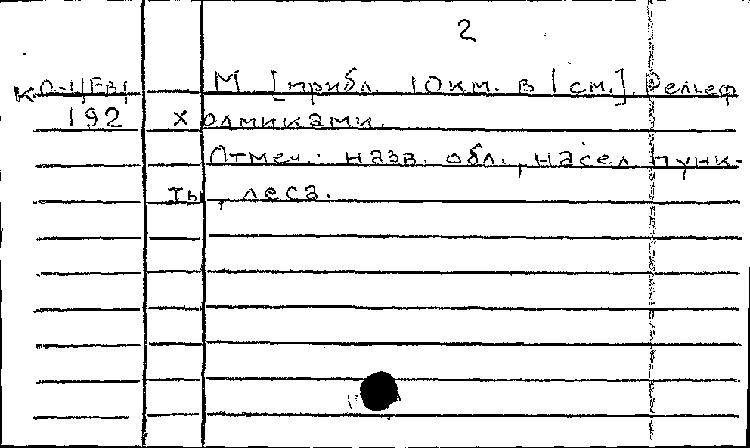 2
К О-1/Евр М [прибл. 10км. в 1см.]. Рельеф
192 холмиками.
Отмеч.: назв. обл., насел. пунк-
ты, леса.